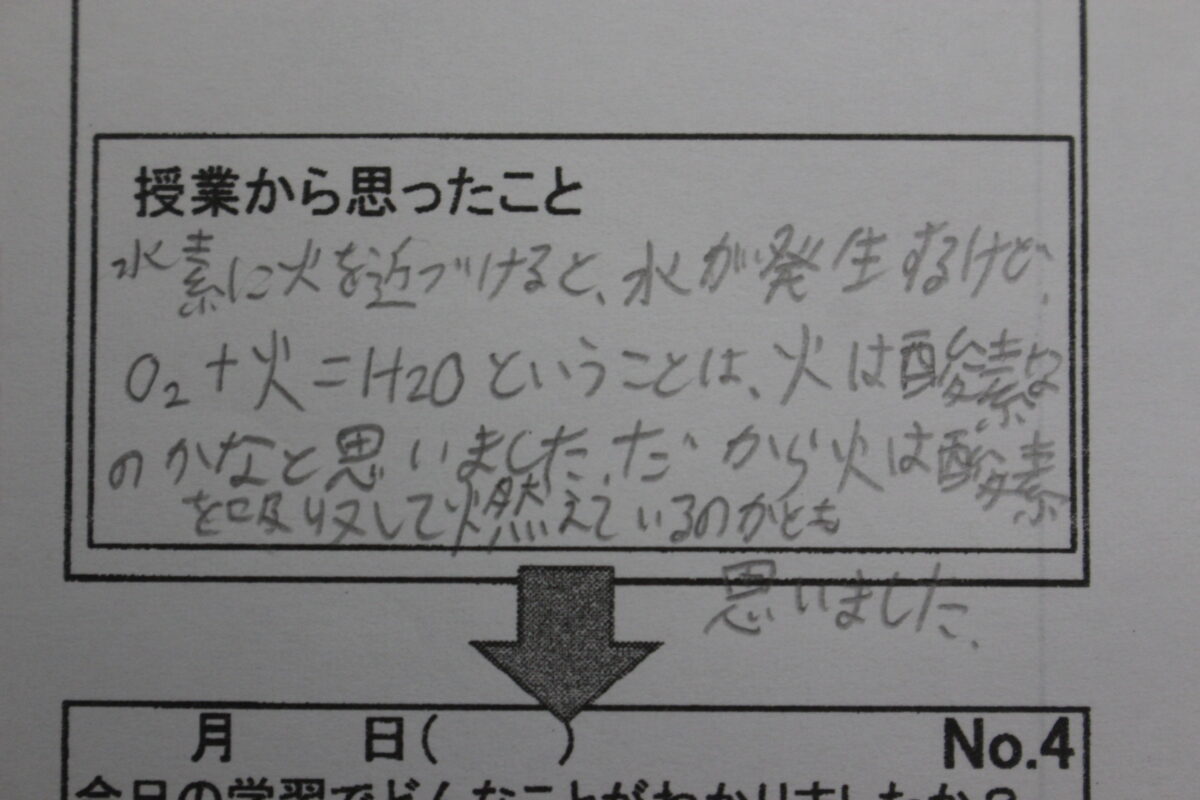 授業から思ったこと
水素に火を近づけると、水が発生するけど、
O₂+火=H2Oということは、火は酸素な
のかなと思いました。だから火は酸素
を吸収して燃えているのかとも
思いました。
月 日( ) No.4
今日の学習でどんなことがわかりましたか?